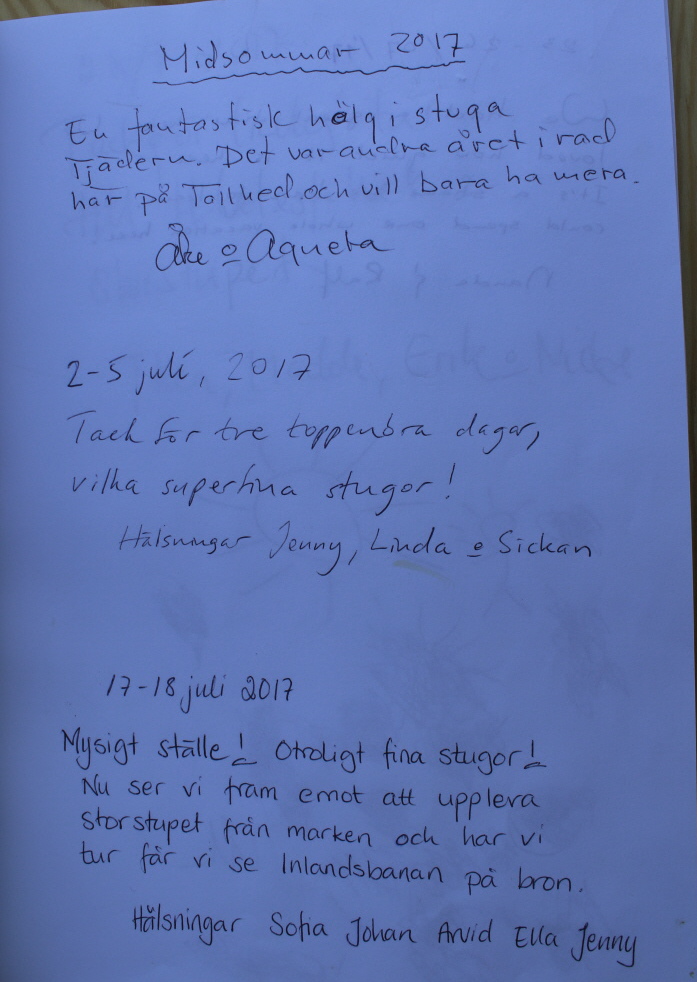 Midsommar 2017
En fantastisk hälg i stuga
Tjädern. Det var andra året i rad
här på Tallhed och vill bara ha mera.
Åke o Agneta
2-5 juli, 2017
Tack för tre toppenbra dagar,
vilka superfina stugor!
Hälsningar Jenny, Linda o Sickan
17-18 juli 2017
Mysigt ställe! Otroligt fina stugor!
Nu ser vi fram emot att uppleva
storstupet från marken och har vi
tur får vi se Inlandsbanan på bron.
Hälsningar Sofia Johan Arvid Ella Jenny